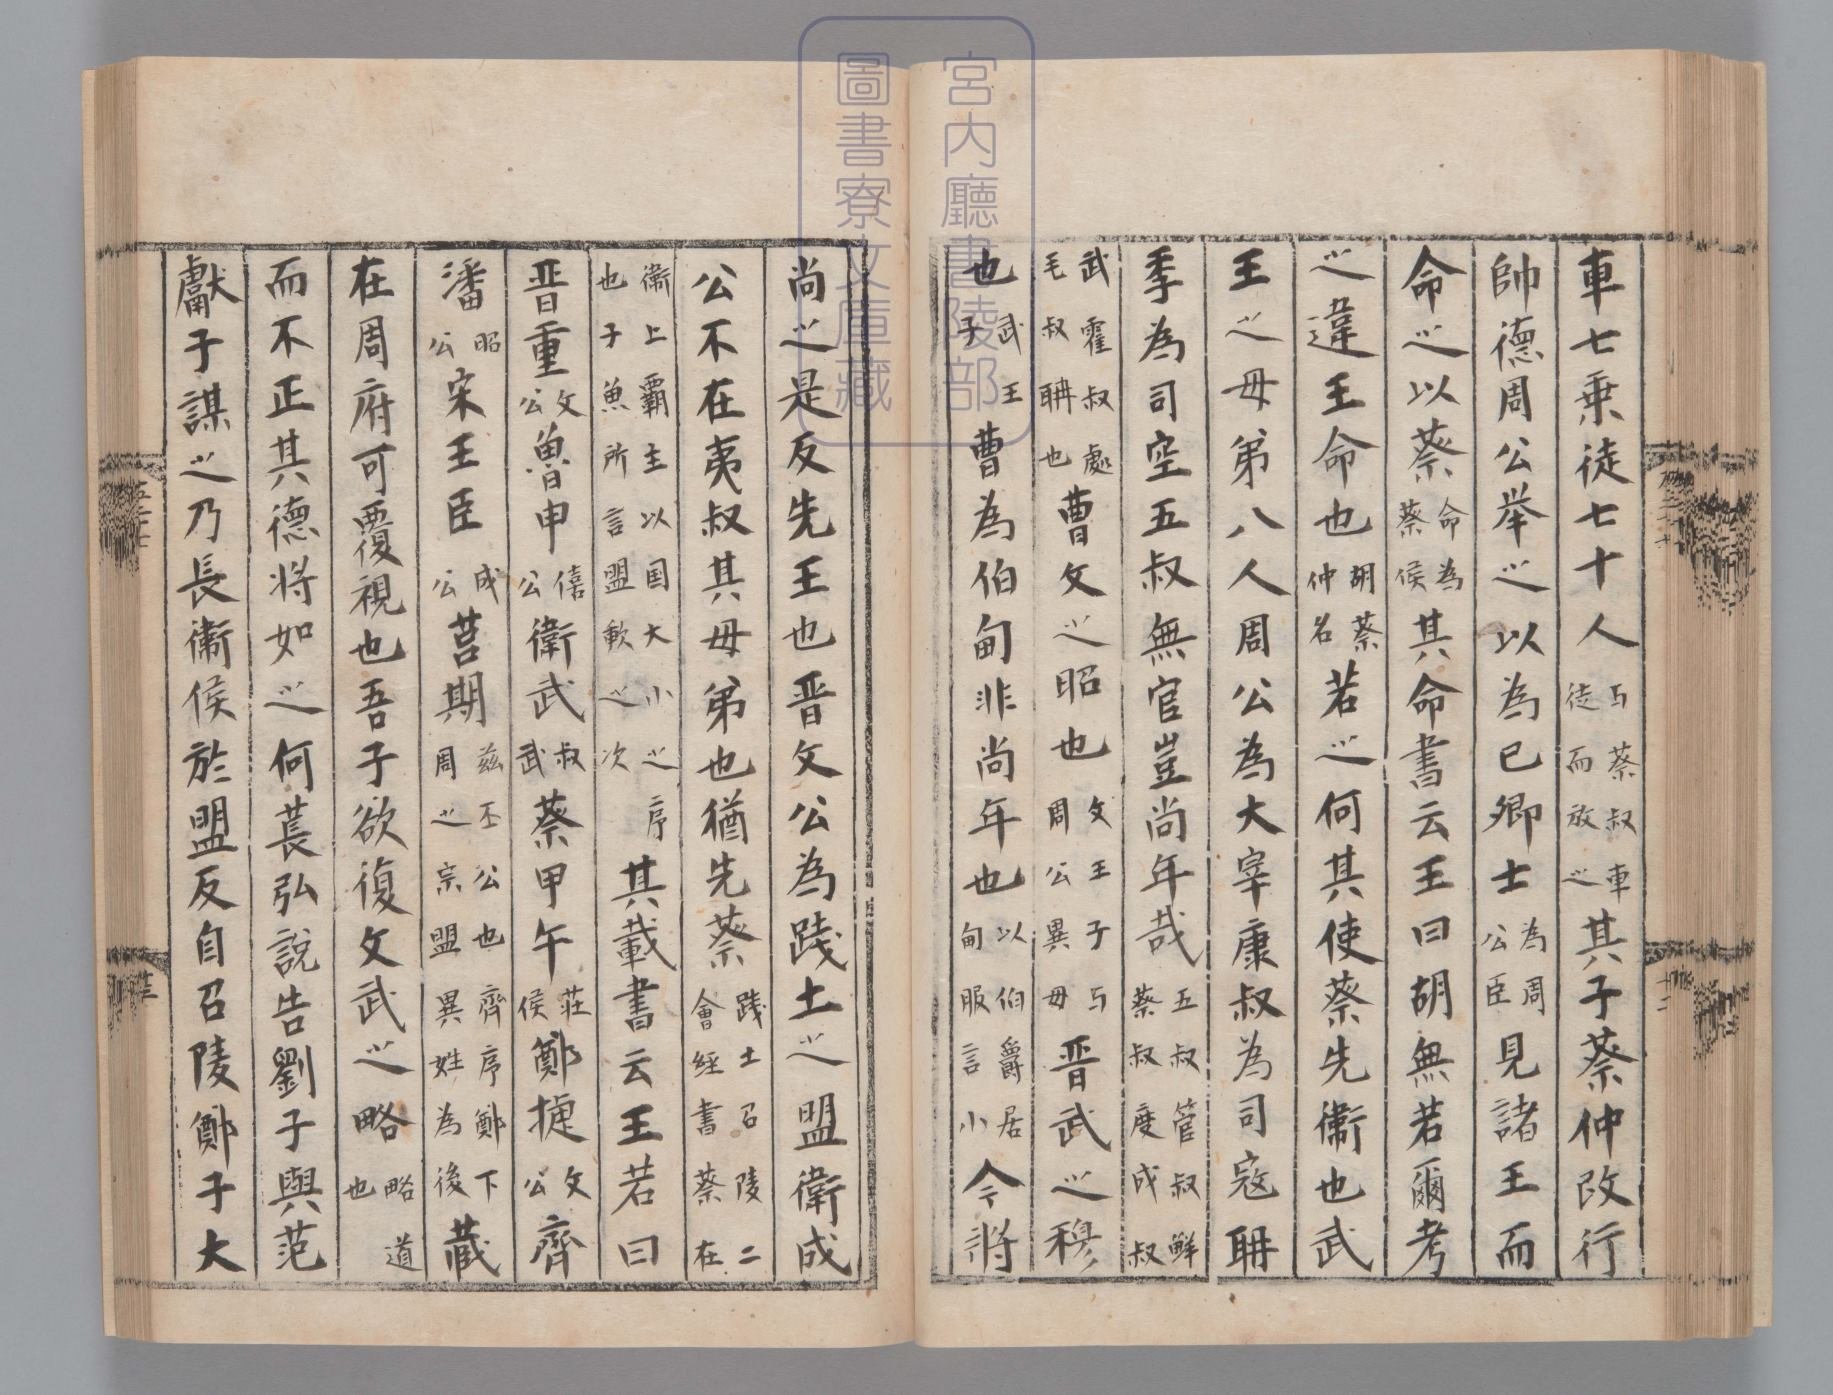 車七乗徒七十人与蔡叔車徒而放之其子蔡仲改行
帥德周公举之以為已卿士為周公臣見諸王而
命之以蔡命為蔡侯其命書云王曰胡無若爾考
之違王命也胡蔡仲名若之何其使蔡先衛也武
王之母弟八人周公為大宰康叔為司寇聃
季為司空五叔無官豈尚年哉五叔管叔鮮蔡叔度成叔
武霍叔處毛叔聃也曹文之昭也文王子与周公異母晋武之穆
也武王子曹為伯甸非尚年也以伯爵居甸服言小今將
尚之是反先王也晋文公為踐土之盟衛成
公不在夷叔其母弟也猶先蔡踐土召陵二會経書蔡在
衛上霸主以国大小之序也子魚所言盟歃之次其載書云王若曰
晋重文公魯申僖公衛武叔武蔡甲午莊侯鄭捷文公齊
潘昭公宋王臣成公莒期茲丕公也齊序鄭下周之宗盟異姓為後藏
在周府可覆視也吾子欲復文武之略略道也
而不正其德将如之何萇弘說告劉子與范
獻子謀之乃長衛侯於盟反自召陵鄭子大
宮内廳書陵部
圖書寮文庫藏